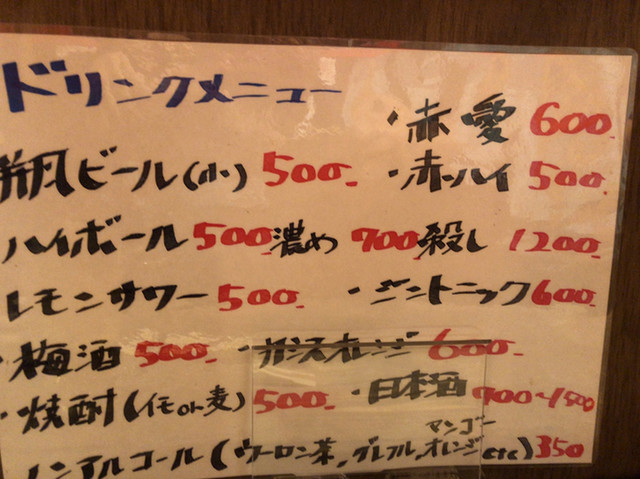 ドリンクメニュー
・赤 愛 600.
瓶ビール(小) 500.
・赤ハイ 500.
ハイボール 500. 濃め 700. 殺し 1200.
レモンサワー 500.
・ジントニック 600.
・梅酒 500.
・カシスオレンジ 600.
・焼酎(イモor麦) 500.
・日本酒 900~1500
ノンアルコール(ウーロン茶,グレフル,オレンジ マンゴー etc) 350